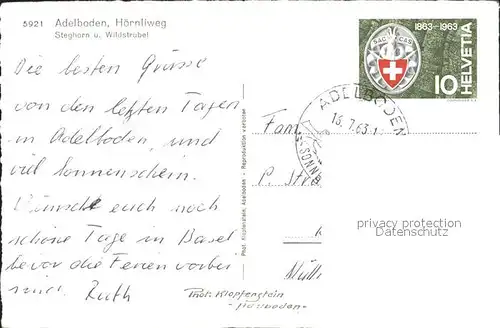 5921 Adelboden, Hörnliweg
Steghorn u. Wildstrubel
Die besten Grüsse
von den letzten Tagen
in Adelboden, und
viel Sonnenschein.
Wünscht euch noch
schöne Tage in Basel
bevor die Ferien vorbei
sind. Ruth
Phot. Klopfenstein, Adelboden - Reproduktion verboten
Phot. Klopfenstein
- Adelboden -
1863-1963
PAC CAS
HELVETIA
10
ADELBODEN
16.7.63
Fam
P. Str
Mütt
privacy protection
Datenschutz